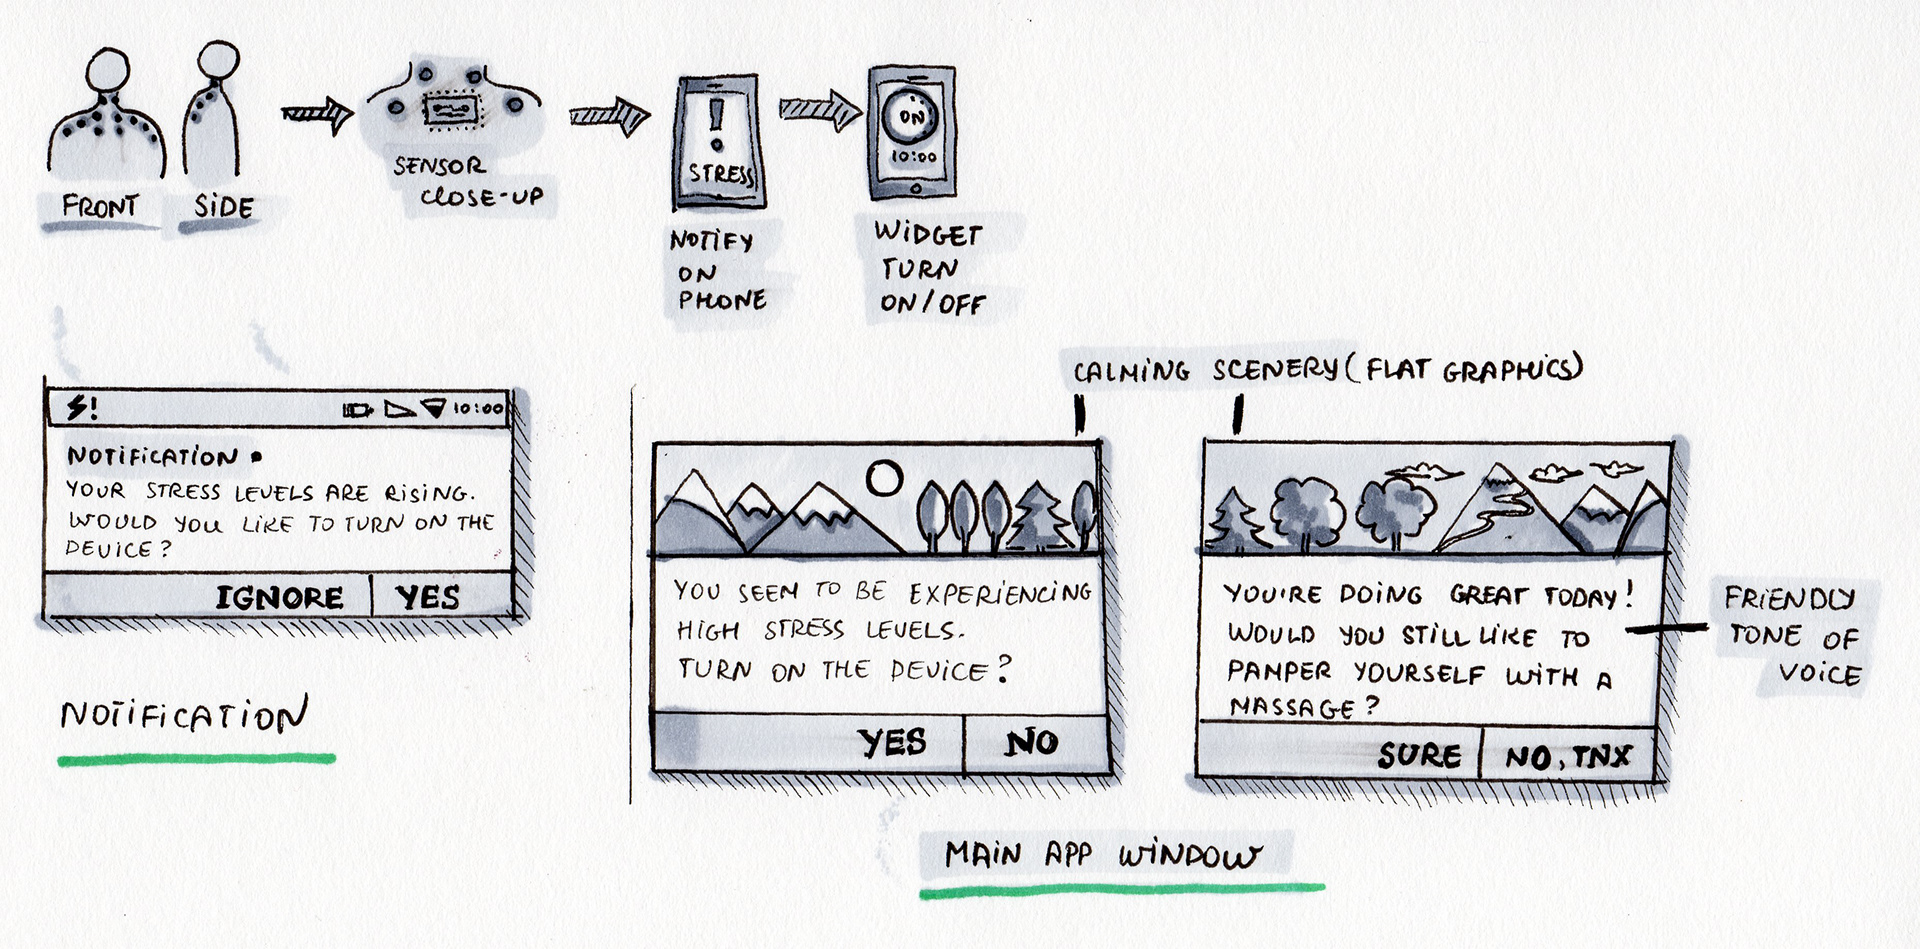 FRONT
SiDE
SENSOR
CLOSE-UP
STRESS
NOTiFY
ON
PHONE
ON
10:00
WiDGET
TURN
ON/OFF
!
10:00
NOTiFiCATiON
YOUR STRESS LEVELS ARE RiSiNG.
WOULD YOU LiKE TO TURN ON THE
DEViCE?
IGNORE
YES
NOTiFiCATiON
CALMiNG SCENERY (FLAT GRAPHiCS)
YOU SEEM TO BE EXPERiENCiNG
HiGH STRESS LEVELS.
TURN ON THE DEViCE?
YES
NO
YOU'RE DOiNG GREAT TODAY!
WOULD YOU STiLL LiKE TO
PAMPER YOURSELF WiTH A
MASSAGE?
SURE
NO, TNX
FRiENDLY
TONE OF
VOiCE
MAiN APP WiNDOW